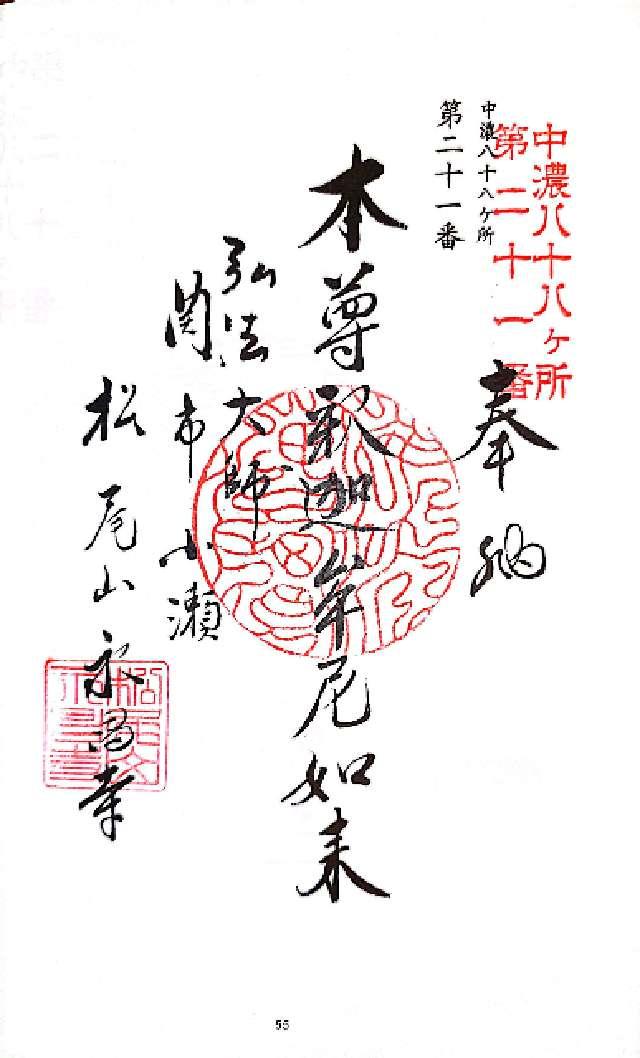 中濃八十八ヶ所
第二十一番
中濃八十八ヶ所
第二十一番
奉納
本尊釈迦牟尼如来
弘法大師
関市小瀬
松尾山永昌寺
55